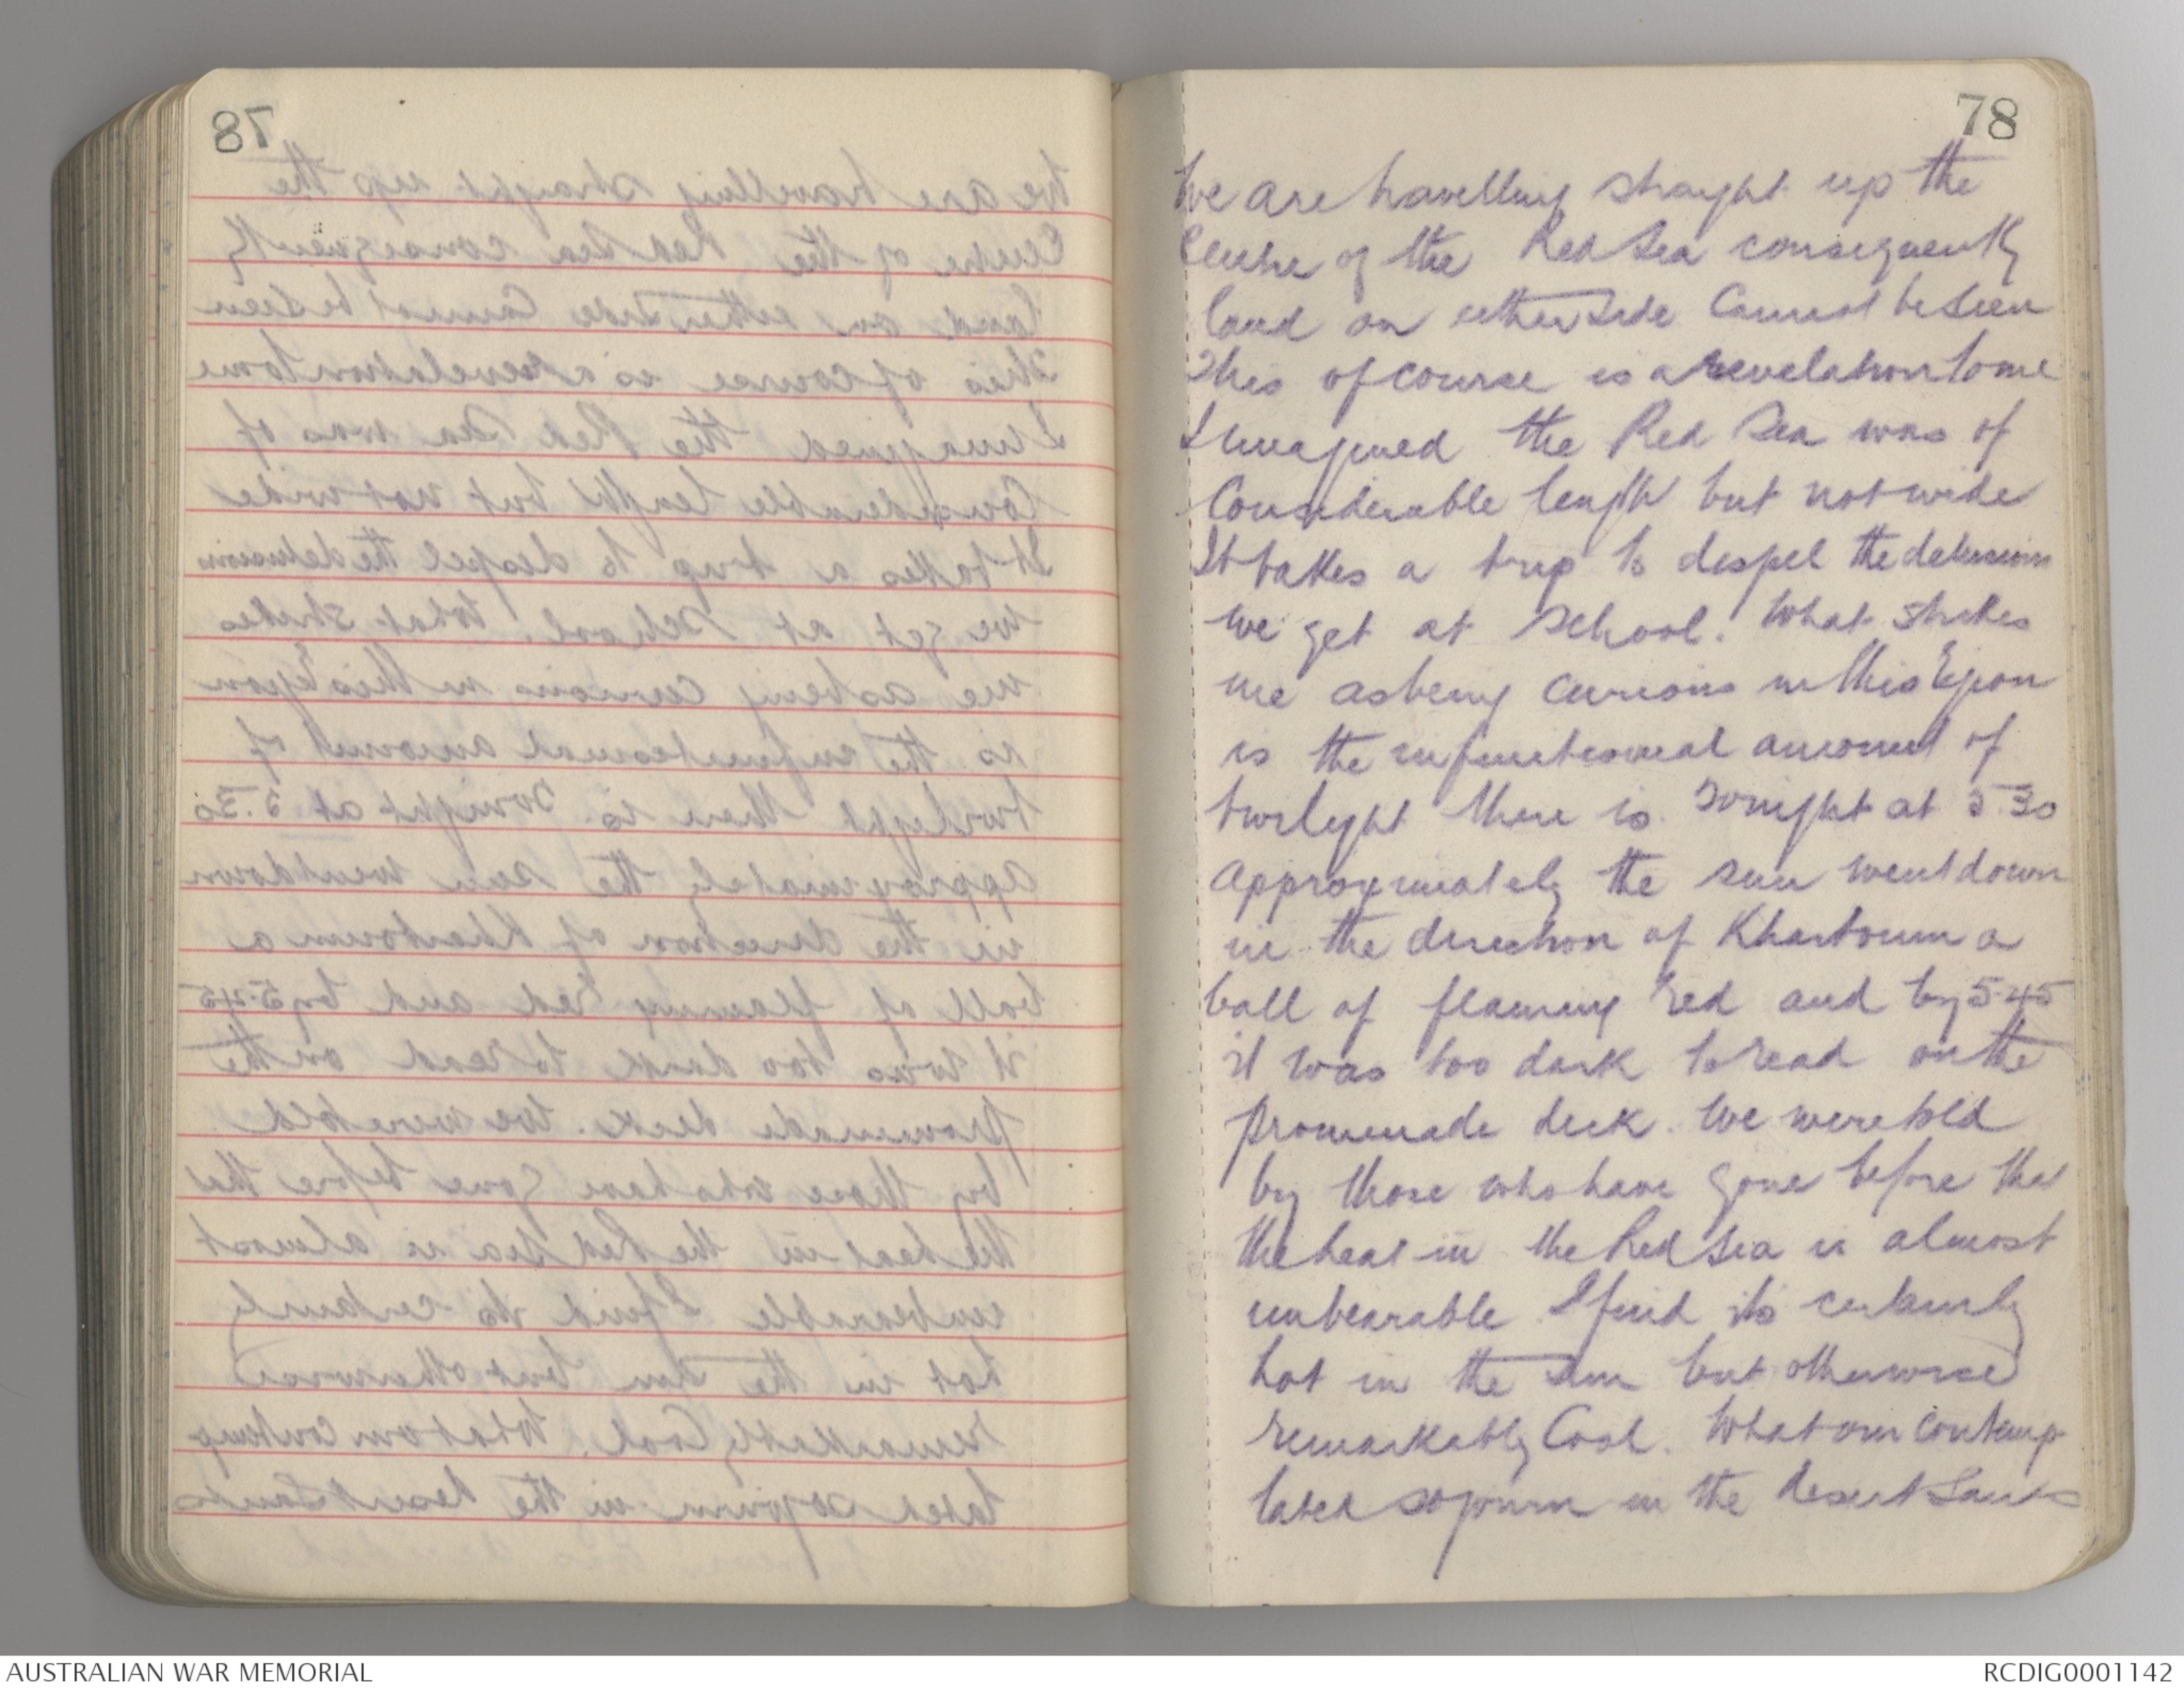 78
78
We are travelling straight up the
Centre of the Red Sea consequently
land on either side Cannot be seen
This of course is a revelation to me
I imagined the Red Sea was of
Considerable length but not wide
It takes a trip to dispel the delusions
we get at school. What strikes
me as being curious in this
is the infinitesimal amount of
twilight there is. Tonight at 5.30
approximately the sun went down
in the direction of Khartoum a
ball of flaming red and by 5.45
it was too dark to read on the
promenade deck. We were told
by those who have gone before that
the heat in the Red Sea is almost
unbearable I find its certainly
hot in the sun but otherwise
remarkably Cool. What our contemp
lated sojourn in the desert sands
AUSTRALIAN WAR MEMORIAL
RCDIG0001142